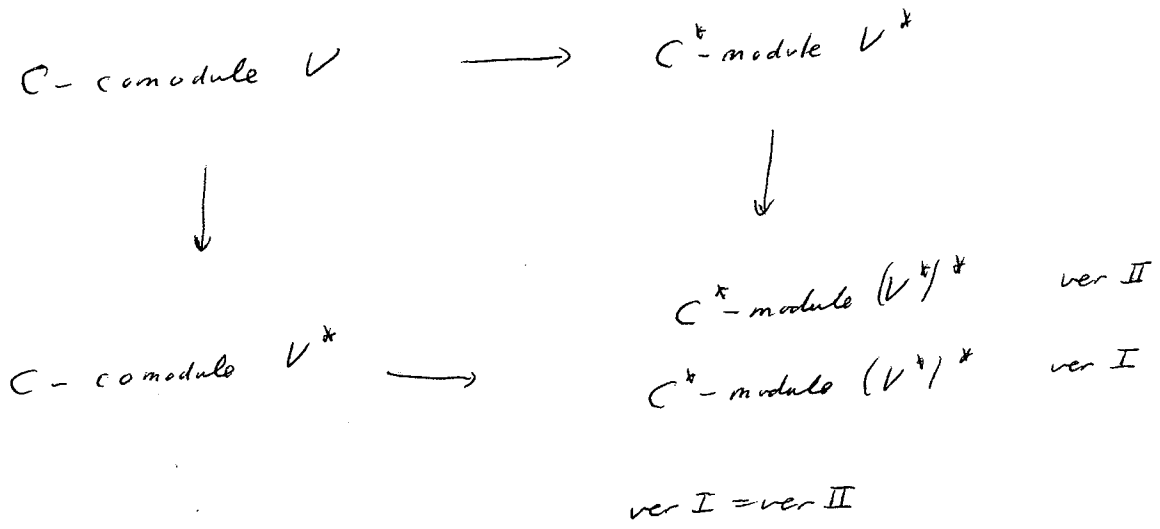 C - comodule V ⟶ C*-module V*
↓ ↓
C*-module (V*)* ver II
C - comodule V* ⟶ C*-module (V*)* ver I
ver I = ver II